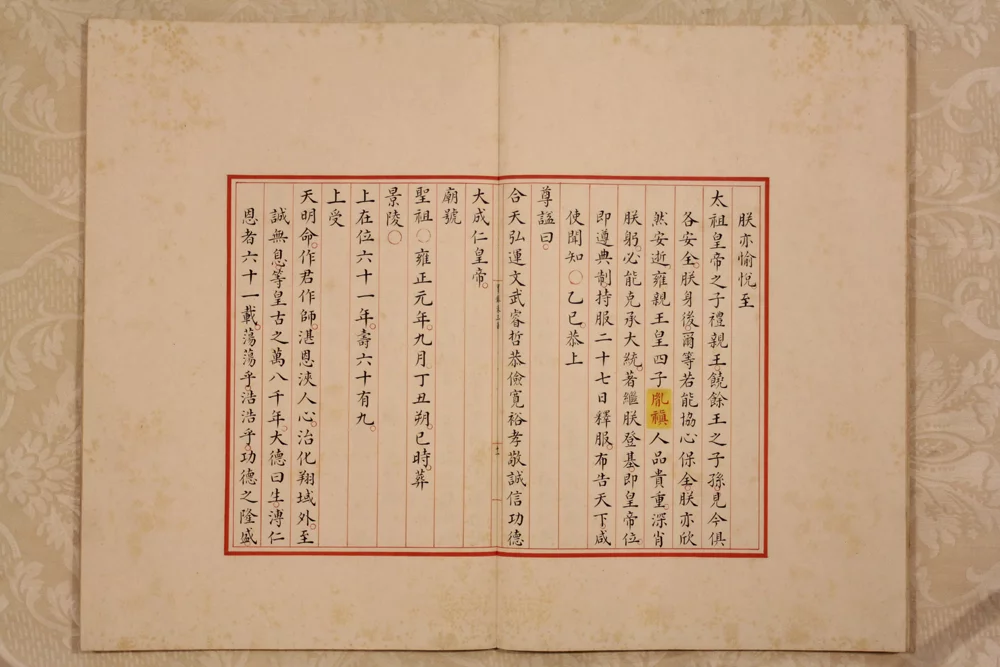 朕亦愉悅至
太祖皇帝之子禮親王饒餘王之子孫見今俱
各安全。朕身後爾等若能協心保全朕亦欣
然安逝雍親王皇四子胤禛人品貴重。深肖
朕躬。必能克承大統。著繼朕登基。即皇帝位
即遵典制持服二十七日釋服。布告天下。咸
使聞知○乙巳。恭上
尊諡曰。
合天弘運文武睿哲恭儉寬裕孝敬誠信功德
大成仁皇帝。
廟號
聖祖○雍正元年。九月丁丑朔。巳時。葬
景陵○
上在位六十一年。壽六十有九。
上受
天明命。作君作師。湛恩浹人心。治化翔域外。至
誠無息。等皇古之萬八千年。大德曰生。溥仁
恩者六十一載。蕩蕩乎。浩浩乎。功德之隆盛